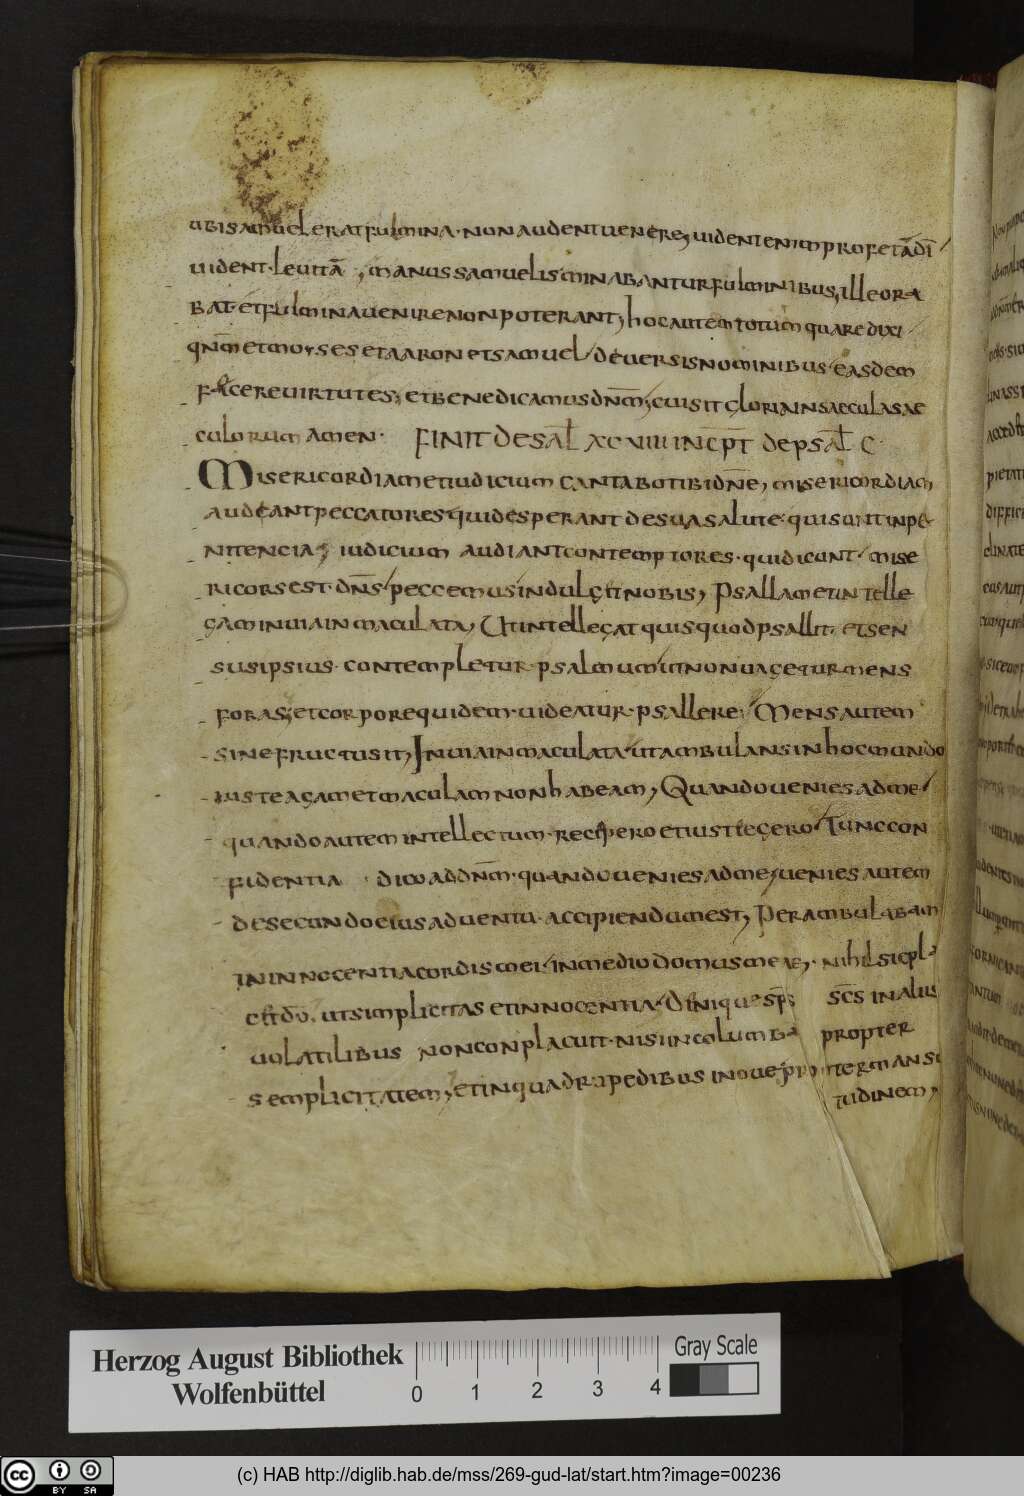 ubi samuel erat fulmina. non audent uenere, uident enim profetā dī
uident. leuitā, manus samuelis minabantur fulminibus, ille ora
bat. et fulmina uenire non poterant, hoc autem totum quare dixi
qn̄m et moyses et aaron et samuel deuersis nominibus easdem
facere uirtutes, et benedicamus dn̄m, cui sit gloria in saecula sae
culorum amen. FINIT DE SAL XCVIIII INCPT DE PSAL C
Misericordiam et iudicium cantabo tibi dn̄e, misericordiam
audeant peccatores qui desperant de sua salute. qui sunt in pe
nitencia, iudicium audiant contemptores. qui dicunt. mise
ricors est. dn̄s peccemus indulgit nobis, Psallam et intelle
gam in uia inmaculata, Ut intellegat quis quod psallit, et sen
sus ipsius. contempletur psalmum ut non uagetur mens
foras, et corpore quidem uideatur psallere. Mens autem
sine fructu sit, In uia inmaculata ut ambulans in hoc mundo
iuste agam et maculam non habeam, Quando uenies ad me
quando autem intellectum recipero et iuste egero Tunc con
fidentia dico ad dn̄m. quando uenies ad me, uenies autem
de secundo eius aduentu. accipiendum est, Perambulabam
in innocentia cordis mei. in medio domus meae, nihil sic pla
cet dō. ut simplicitas et innocentia. Denique sp̄s sc̄s in alus
uolatilibus non conplacuit. nisi in columba propter
semplicitatem, et in quadrupedibus in oue propter mansu
tudinem,
Herzog August Bibliothek
Wolfenbüttel
0 1 2 3 4
Gray Scale
cc BY SA
(c) HAB http://diglib.hab.de/mss/269-gud-lat/start.htm?image=00236